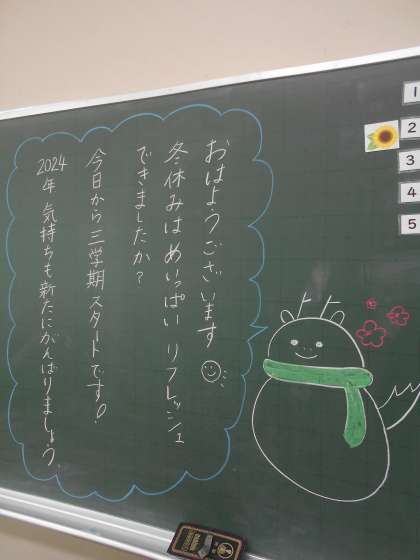 おはようございます
冬休みは めいっぱい リフレッシュ
できましたか?
今日から 三学期 スタートです!
2024年 気持ちも新たにがんばりましょう。
1
2
3
4
5